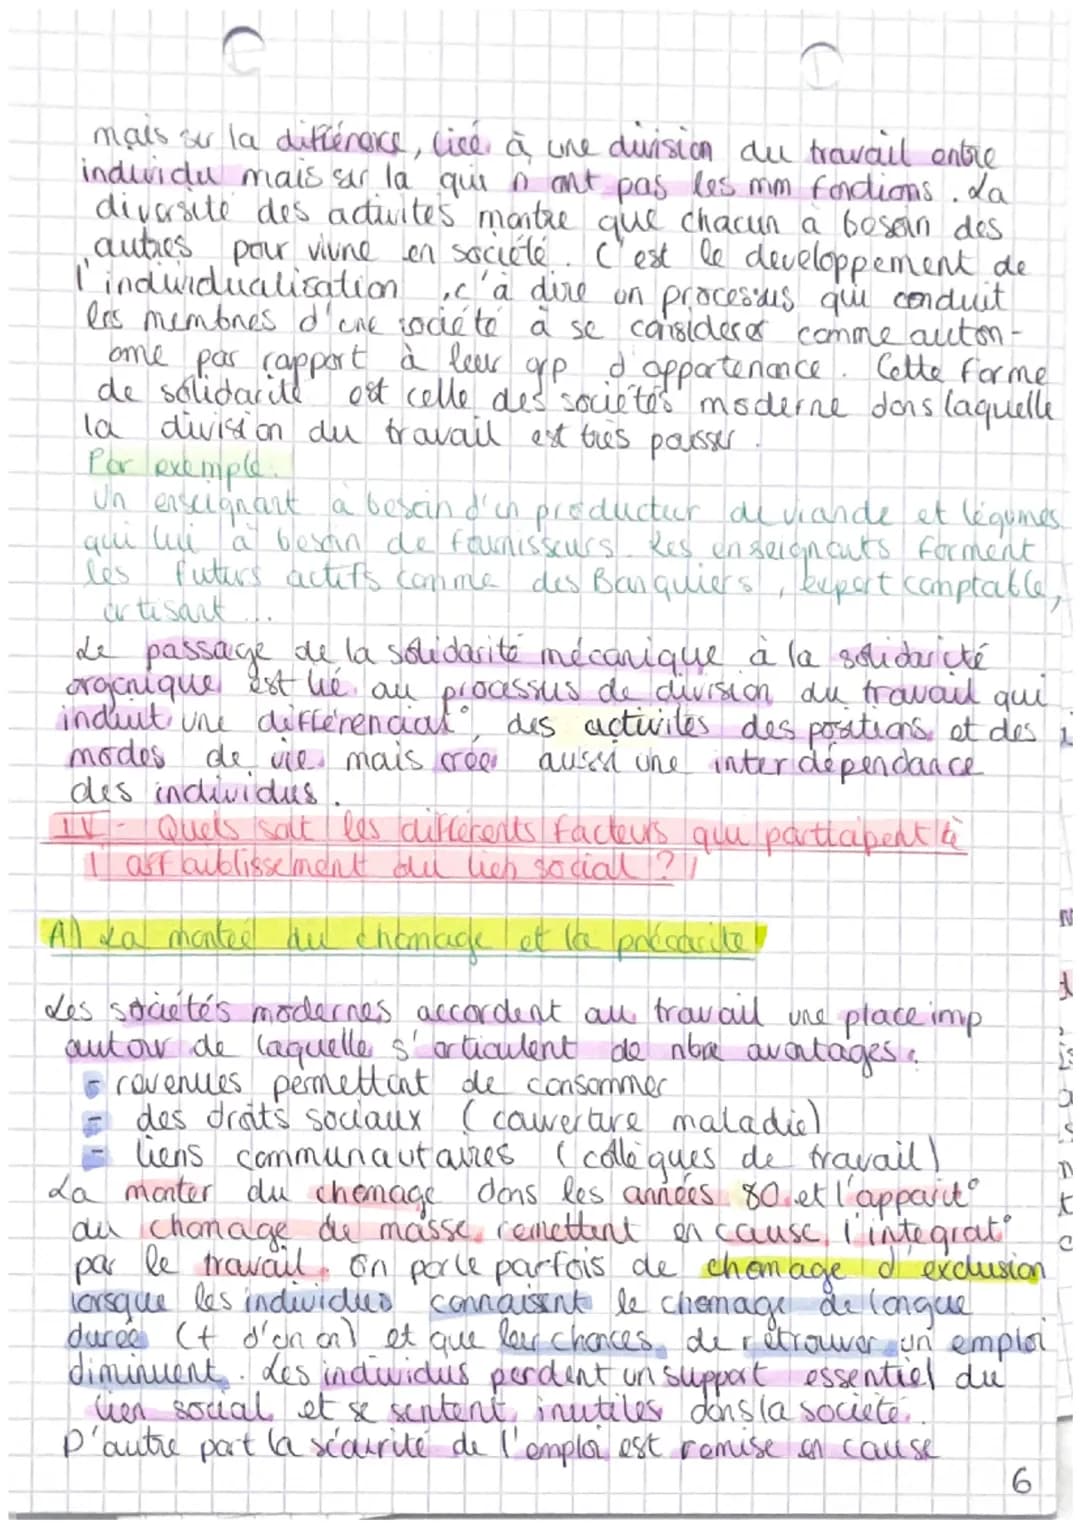 mais sur la différence, liée à une division du travail entre
individu mais sur la qui n ont pas les mm fonctions. La
diversité des activités montre que chacun à besoin des
autres pour vivre en société. C'est le developpement de
l'individualisation, c'à dire un processus qui conduit
les membres d'une société à se considerer comme auton-
ome par rapport à leur grp d'appartenance. Cette forme
de solidarité est celle des sociétés moderne dans laquelle
la division du travail est très pousser.
Par exemple.
Un enseignant a besoin d'un producteur de viande et légumes
qui lui a besoin de fournisseurs. Les enseignants forment
les futurs actifs comme des Banquiers, expert comptable,
artisant...
Le passage de la solidarité mécanique à la solidarité
organique est lié au processus de division du travail qui
induit une différenciat°, des activités des positions et des
modes de vie mais crée aussi une interdépendance
des individus.
IV- Quels sont les différents facteurs qui participent à
l'affaiblissement du lien social ?
A) La montée du chomage et la précarité
Les sociétés modernes accordent au travail une place imp
autour de laquelle s'articulent de nbre avantages :
- revenues permettant de consommer
- des droits sociaux (couverture maladie)
- liens communautaires (collègues de travail)
La monter du chomage dans les années 80 et l'apparit°
du chomage de masse remettent en cause l'integrat°
par le travail. On parle parfois de chomage d'exclusion
lorsque les individus connaissent le chomage de longue
durée (+ d'un an) et que leur chances de retrouver un emploi
diminuent. Les individus perdent un support essentiel du
lien social et se sentent inutiles dans la société.
D'autre part la sécurité de l'emploi est remise en cause
6